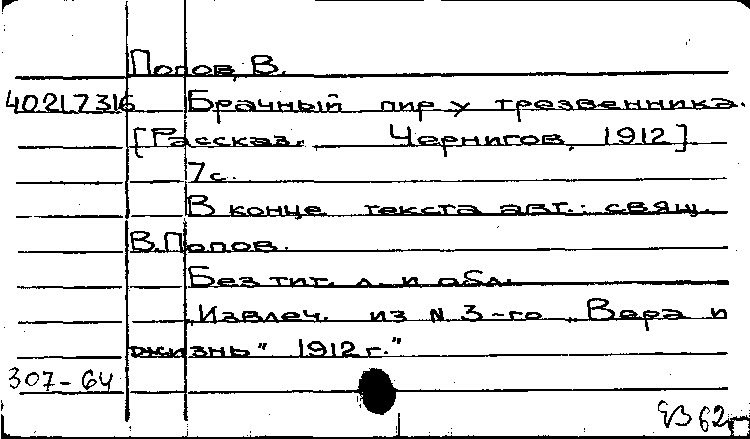 Попов, В.
40217316 Брачный пир у трезвенника.
[Рассказ. Чернигов, 1912].
7с.
В конце текста авт.: свящ.
В.Попов.
Без тит. л. и обл.
„Извлеч. из N 3-го „Вера и
жизнь" 1912г."
307-64
62